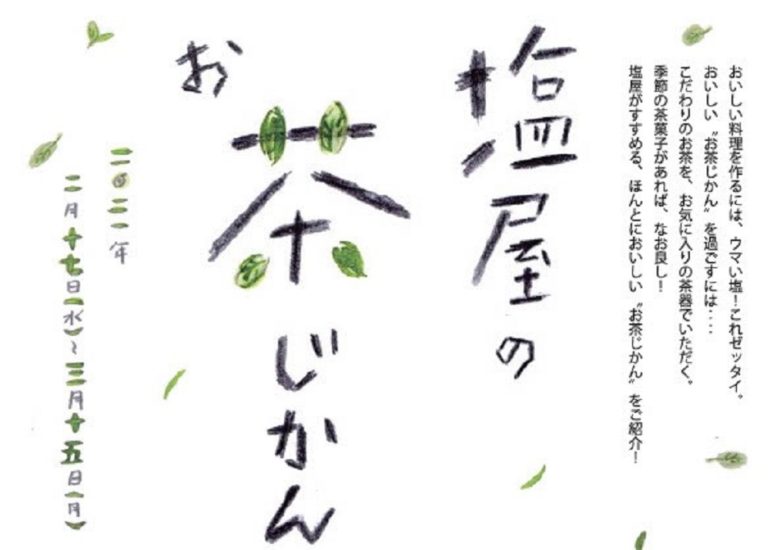 おいしい料理を作るには、ウマい塩！これゼッタイ。
おいしい〝お茶じかん〟を過ごすには‥‥
こだわりのお茶を、お気に入りの茶器でいただく。
季節の茶菓子があれば、なお良し！
塩屋がすすめる、ほんとにおいしい〝お茶じかん〟をご紹介！
塩屋の
お茶じかん
二〇二一年
二月十七日(水)〜三月十五日(月)